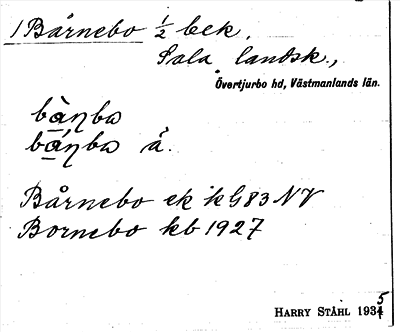 1 Bårnebo ½ bek.
Sala landsk.,
Övertjurbo hd, Västmanlands län.
bàƞbω
báƞbω å.
Bårnebo ek kG83 NV
Bornebo kb 1927
HARRY STÅHL 1935